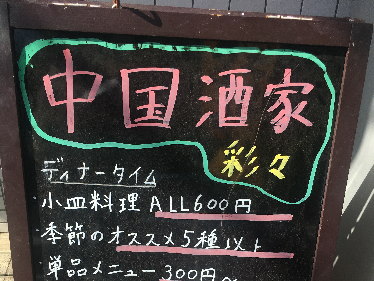 中国酒家
彩々
ディナータイム
小皿料理 ALL600円
季節のオススメ5種以上
単品メニュー300円〜